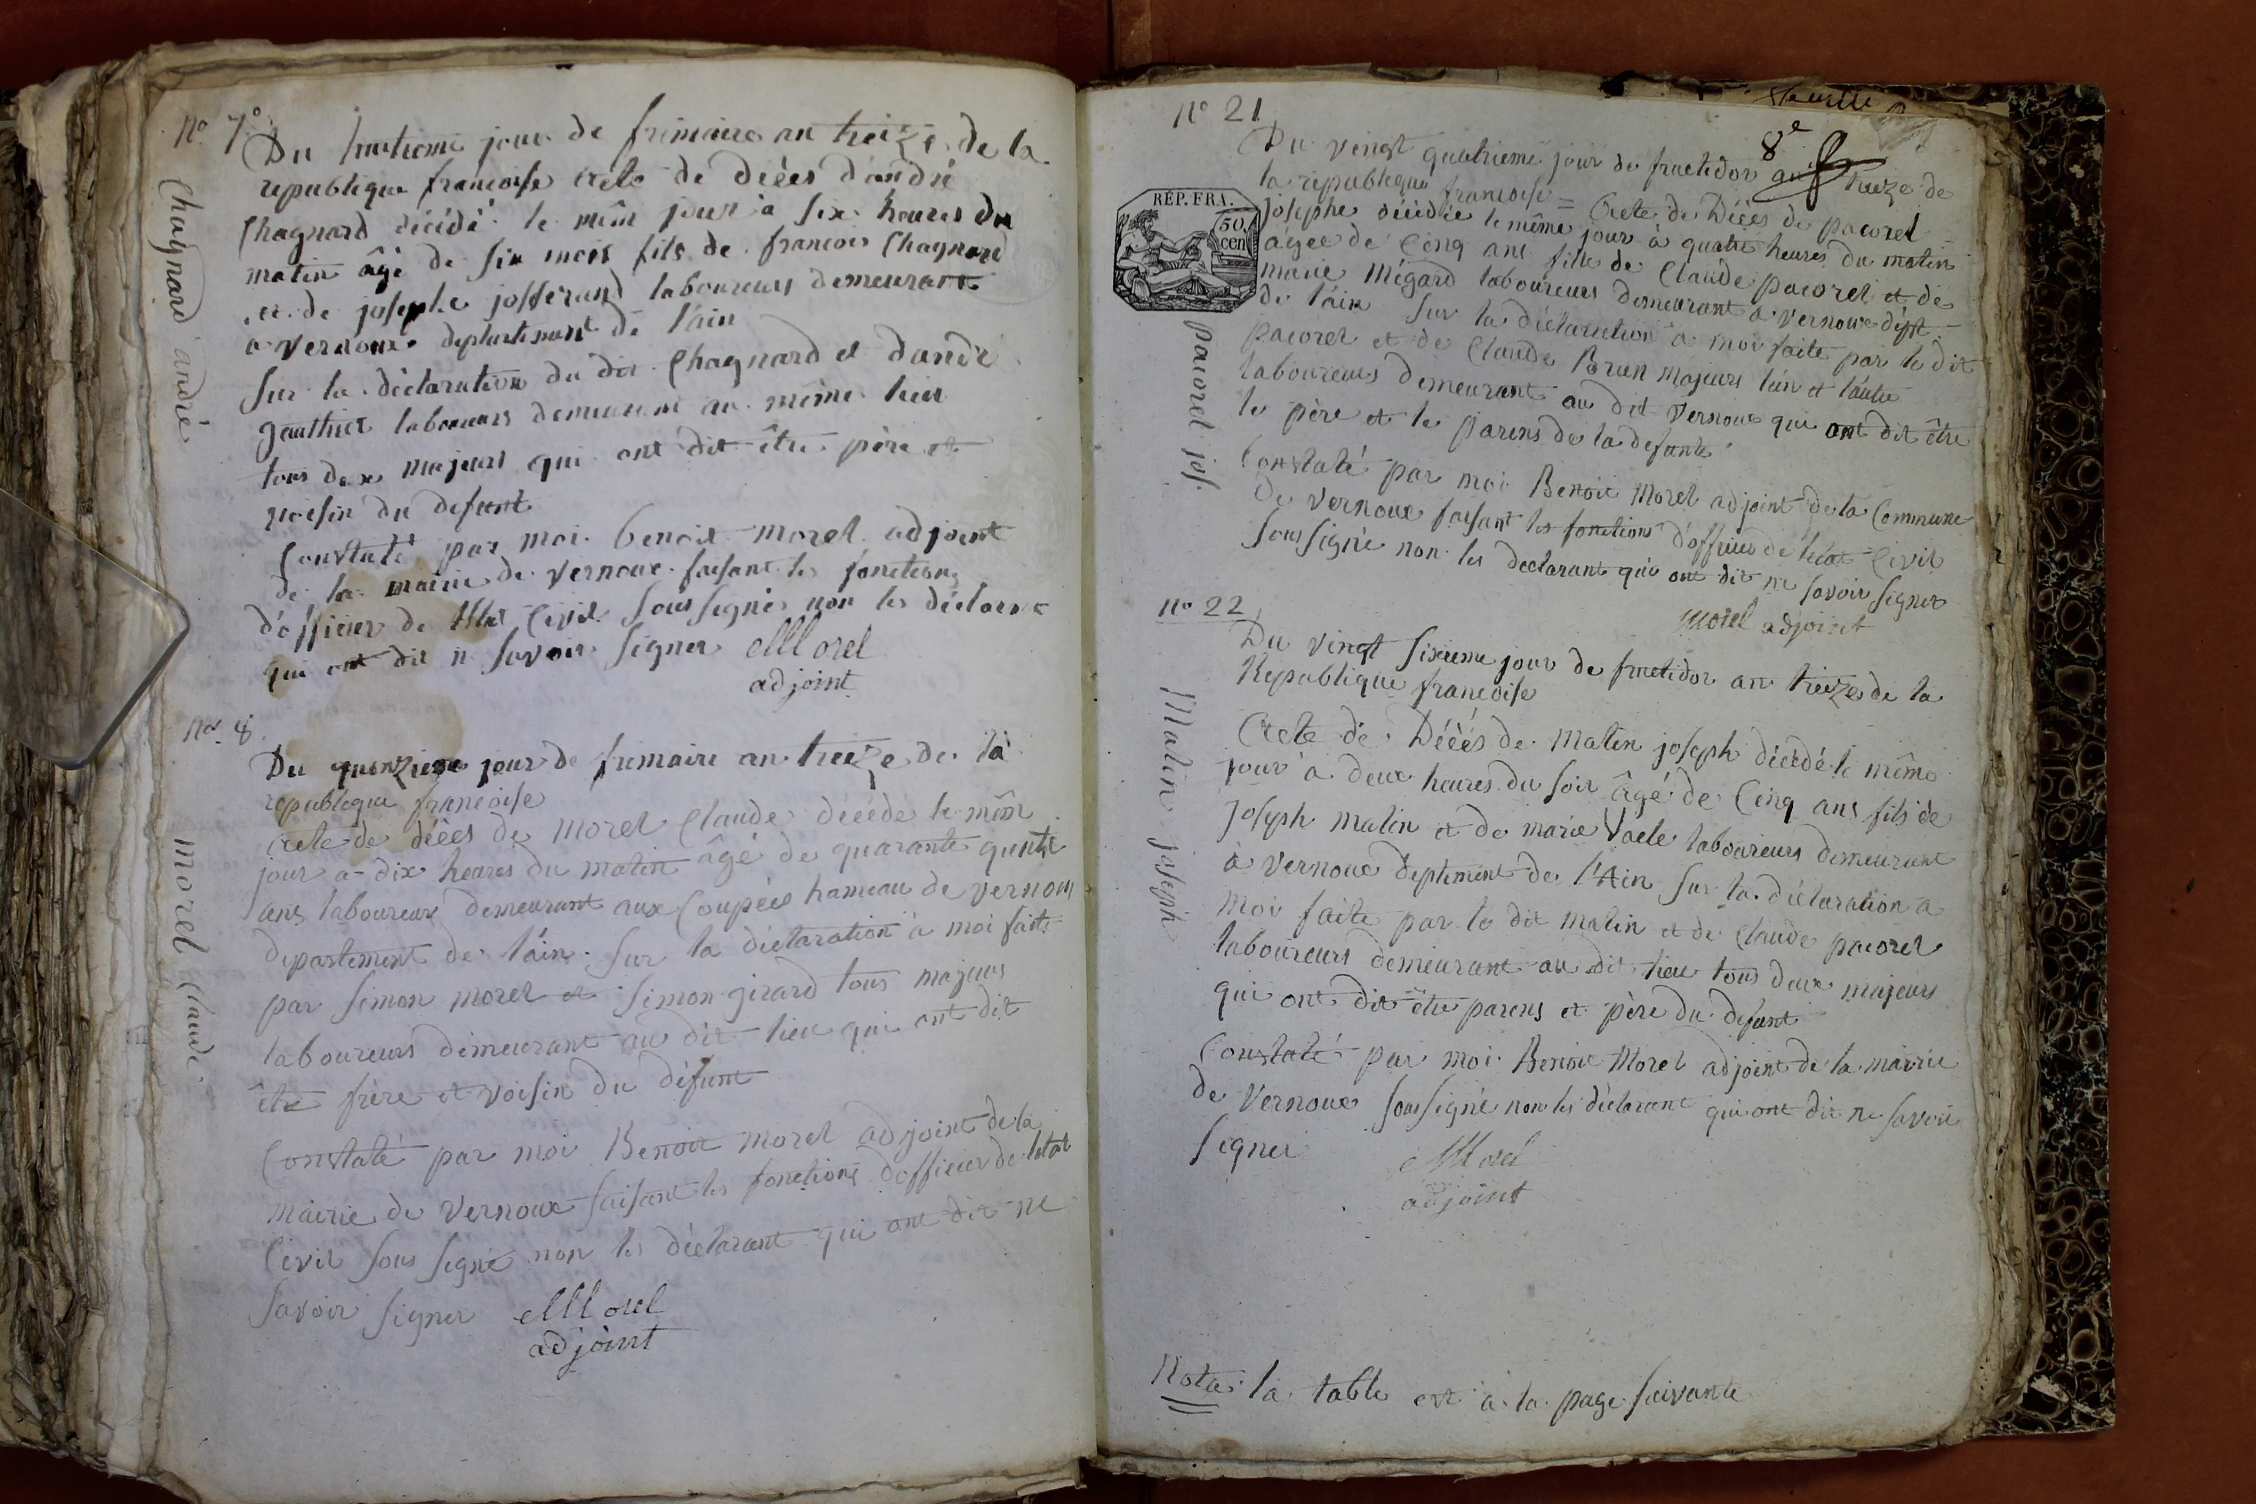 No 7e
Du huitieme jour de frimaire an treize de la
republique francoise Acte de Décès d'andré
Chagnard décédé le mêm jour à six heures du
matin âgé de six mois fils de francois Chagnard
et de josephe josserand laboureurs demeurant
a vernoux departement de l'ain
Sur la déclaration du dit Chagnard et d'andré
gauthier laboureurs demeurant au même lieu
tous deux majeurs qui ont dit être père et
voisin du defunt
Constaté par moi benoit morel adjoint
de la mairie de vernoux faisant les fonctions
d'officier de l'état Civil Sous Signé non les déclarant
qui ont dit n Savoir Signer Morel
adjoint
Chagnard andré
No 8
Du quenzieme jour de frimaire an treize de la
republique francoise
Acte de décès de Morel Claude décédé le mêm
jour a dix heures du matin âgé de quarante quatre
ans laboureur demeurant aux Coupées hameau de vernoux
departement de l'ain. Sur la déclaration à moi faite
par Simon morel et Simon girard tous majeurs
laboureurs demeurant au dit lieu qui ont dit
être frère et voisin du défunt
Constaté par moi Benoit Morel adjoint de la
mairie de Vernoux faisant les fonctions d'officier de letat
Civil Sous Signé non les déclarant qui ont dit ne
Savoir Signer Morel
adjoint
morel Claude
feuille
8e
No 21
Du vingt quatrieme jour de fructidor an treize de
la république francoise = Acte de Décès de pacorel
josephe décédée le même jour à quatre heures du matin
âgée de Cinq ans fille de Claude pacorel et de
marie Mégard laboureurs demeurant à vernoux dépt
de l'ain Sur la déclaration a moi faite par le dit
pacorel et de Claude Brun majeurs l'un et l'autre
laboureurs demeurant au dit Vernoux qui ont dit être
le père et le parens de la defunte
Constaté par moi Benoit Morel adjoint de la Commune
de vernoux faisant les fonctions d'officier de létat Civil
Sous Signé non les declarant qui ont dit ne savoir Signer
Morel adjoint
RÉP. FRA.
50
cen
pacorel jos.
no 22
Du vingt Sixieme jour de fructidor an treize de la
Republique francoise
Acte de Décès de Matin joseph décédé le même
jour a deux heures du soir âgé de Cinq ans fils de
Joseph Matin et de marie laboureurs demeurant
à vernoux déptement de l'Ain Sur la déclaration a
moi faite par le dit Matin et de Claude pacorel
laboureurs demeurant au dit lieu tous deux majeurs
qui ont dit être parens et père du défunt
Constaté par moi Benoit Morel adjoint de la mairie
de Vernoux Sous Signé non les déclarant qui ont dit ne Savoir
Signer Morel
adjoint
Matin joseph
Nota: la table est à la page Suivante